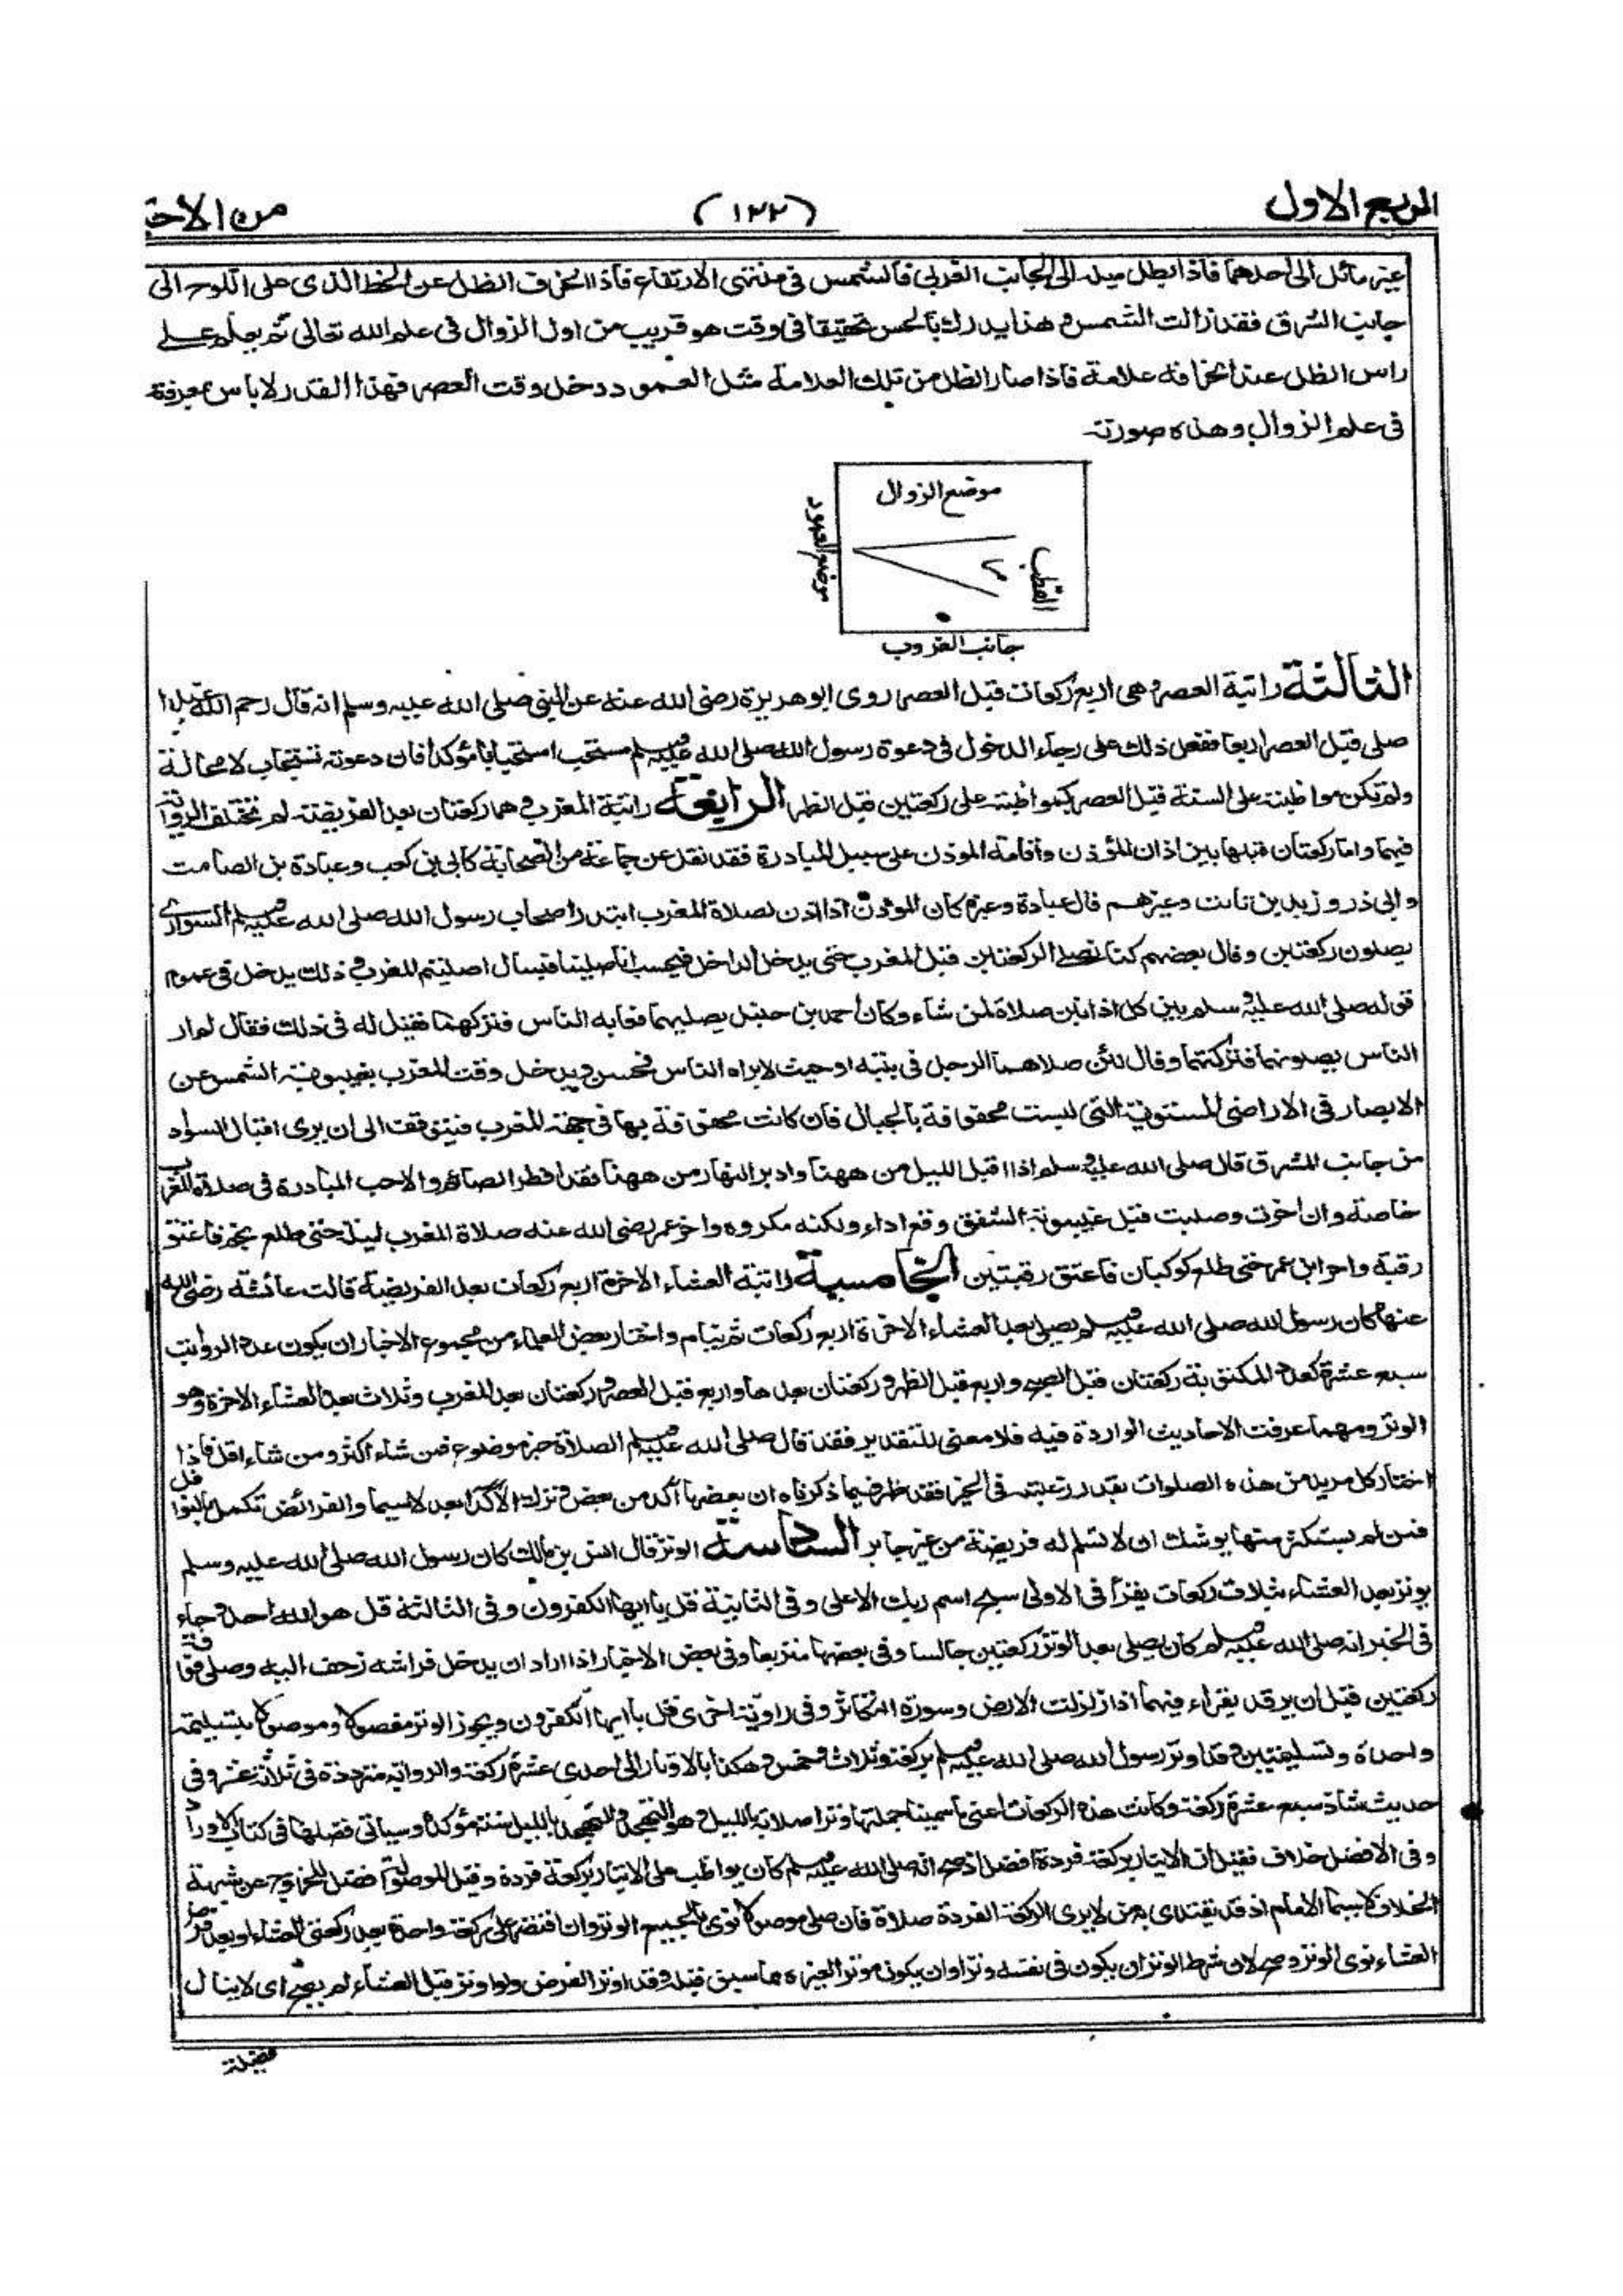 الربع الاول
(١٢٢)
من الاحـ
غير مائل الى احدهما فاذا بطل ميله الى الجانب الغربى فالشمس فى منتهى الارتفاع فاذا انحرف الظل عن الخط الذى على اللوح الى
جانب الشرق فقد زالت الشمس و هذا يدرك بالحس تحقيقا فى وقت هو قريب من اول الزوال فى علم الله تعالى ثم يعلم على
راس الظل عند انحرافه علامة فاذا صار الظل من تلك العلامة مثل العمود دخل وقت العصر فهذا القدر لا باس بمعرفة
فى علم الزوال وهذه صورته
موضع الزوال
موضع العمود
القطب
جانب الغروب
الثالثة راتبة العصر وهى اربع ركعات قبل العصر روى ابو هريرة رضى الله عنه عن النبى صلى الله عليه وسلم انه قال رحم الله عبدا
صلى قبل العصر اربعا ففعل ذلك على رجاء الدخول فى دعوة رسول الله صلى الله عليه وسلم مستحب استحبابا مؤكدا فان دعوته تستجاب لا محالة
ولم تكن مواظبته على السنة قبل العصر كمواظبته على ركعتين قبل الظهر الرابعة راتبة المغرب وهما ركعتان بعد الفريضة لم تختلف الرواية
فيهما واما ركعتان قبلها بين اذان المؤذن واقامة الموذن على سبيل المبادرة فقد نقل عن جماعة من الصحابة كابى بن كعب وعبادة بن الصامت
وابى ذر و زيد بن ثابت وغيرهم قال عبادة وغيره كان الموذن اذا اذن لصلاة المغرب ابتدر اصحاب رسول الله صلى الله عليه وسلم السوارى
يصلون ركعتين وقال بعضهم كنا نصلى الركعتين قبل المغرب حتى يدخل الداخل فيحسب انا صلينا فيسال اصليتم المغرب و ذلك يدخل فى عموم
قوله صلى الله عليه وسلم بين كل اذانين صلاة لمن شاء وكان احمد بن حنبل يصليهما فعابه الناس فتركهما فقيل له فى ذلك فقال لم ار
الناس يصلونهما فتركتهما وقال لئن صلاهما الرجل فى بيته او حيث لا يراه الناس فحسن ويدخل وقت المغرب بغيبوبة الشمس عن
الابصار فى الاراضى المستوية التى ليست محفوفة بالجبال فان كانت محفوفة بها فى جهة المغرب فيتوقف الى ان يرى اقبال السواد
من جانب المشرق قال صلى الله عليه وسلم اذا اقبل الليل من ههنا وادبر النهار من ههنا فقد افطر الصائم والاحب المبادرة فى صلاة المغرب
خاصة وان اخرت وصليت قبل غيبوبة الشفق وقع اداء ولكنه مكروه واخر عمر رضى الله عنه صلاة المغرب ليلة حتى طلع نجم فاعتق
رقبة واخر ابن عمر حتى طلع كوكبان فاعتق رقبتين الخامسة راتبة العشاء الاخرة اربع ركعات بعد الفريضة قالت عائشة رضى الله
عنها كان رسول الله صلى الله عليه وسلم يصلى بعد العشاء الاخرة اربع ركعات ثم ينام واختار بعض العلماء من مجموع الاخبار ان يكون عدد الرواتب
سبع عشرة كعدد المكتوبة ركعتان قبل الصبح و اربع قبل الظهر و ركعتان بعدها واربع قبل العصر و ركعتان بعد المغرب وثلاث بعد العشاء الاخرة وهو
الوتر ومهما عرفت الاحاديث الواردة فيه فلا معنى للتقدير فقد قال صلى الله عليه وسلم الصلاة خير موضوع فمن شاء اكثر ومن شاء اقل فاذا
اختار كل مريد من هذه الصلوات بقدر رغبته فى الخير فقد ظهر فيما ذكرناه ان بعضها آكد من بعض وترك الآكد ابعد لا سيما والفرائض تكمل بالنوافل
فمن لم يستكثر منها يوشك ان لا تسلم له فريضة من غير جابر السادسة الوتر قال انس بن مالك كان رسول الله صلى الله عليه وسلم
يوتر بعد العشاء بثلاث ركعات يقرأ فى الاولى سبح اسم ربك الاعلى وفى الثانية قل يا ايها الكفرون وفى الثالثة قل هو الله احد و جاء
فى الخبر انه صلى الله عليه وسلم كان يصلى بعد الوتر ركعتين جالسا وفى بعضها متربعا وفى بعض الاخبار اذا اراد ان يدخل فراشه زحف اليه وصلى فوقه
ركعتين قبل ان يرقد يقراء فيهما اذا زلزلت الارض وسورة التكاثر وفى رواية اخرى قل يا ايها الكفرون ويجوز الوتر مفصولا وموصولا بتسليمة
واحدة وتسليمتين وقد اوتر رسول الله صلى الله عليه وسلم بركعة وثلاث وخمس وهكذا بالاوتار الى احدى عشرة ركعة والرواية مترددة فى ثلاثة عشر وفى
حديث شاذ سبع عشرة ركعة وكانت هذه الركعات اعنى ما سمينا جملتها وترا صلاته بالليل وهو التهجد والتهجد بالليل سنة مؤكدة وسياتى فضلها فى كتاب الاوراد
وفى الافضل خلاف فقيل ان الايتار بركعة فردة افضل اذ صح انه صلى الله عليه وسلم كان يواظب على الايتار بركعة فردة وقيل الموصولة افضل للخروج عن شبهة
الخلاف لا سيما الامام اذ قد يقتدى به من لا يرى الركعة الفردة صلاة فان صلى موصولا نوى بالجميع الوتر وان اقتصر على ركعة واحدة بعد ركعتى العشاء او بعد فرض
العشاء نوى الوتر وصح لان شرط الوتر ان يكون فى نفسه وترا وان يكون موترا لغيره مما سبق قبله وقد اوتر الفرض ولو اوتر قبل العشاء لم يصح اى لا ينال
فضيلة